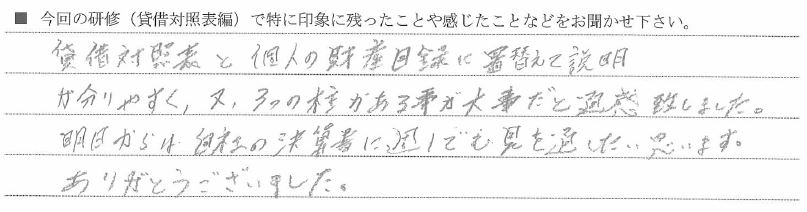 ■ 今回の研修（貸借対照表編）で特に印象に残ったことや感じたことなどをお聞かせ下さい。
貸借対照表と個人の財産目録に置替えて説明
が分りやすく、又、3つの柱がある事が大事だと痛感致しました。
明日からは自社の決算書に週1でも見を通したい思います。
ありがとうございました。